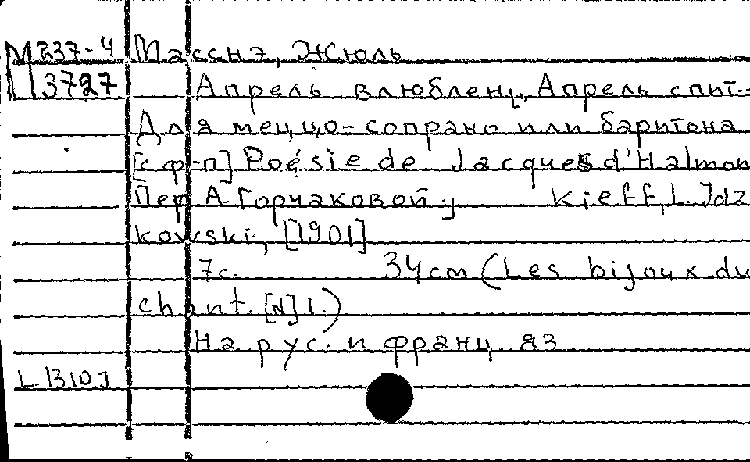 М237-4 Масснэ, Жюль
3727 Апрель влюблен, Апрель спит
Для меццо-сопрано или баритона
[с ф-п] Poésie de Jacques d'Halmon
Пер А Горчаковой.
Kieff, L. Idz
kowski, [1901]
7с. 34cm (Les bijoux du
chant. [N] 1.)
На рус. и франц. яз